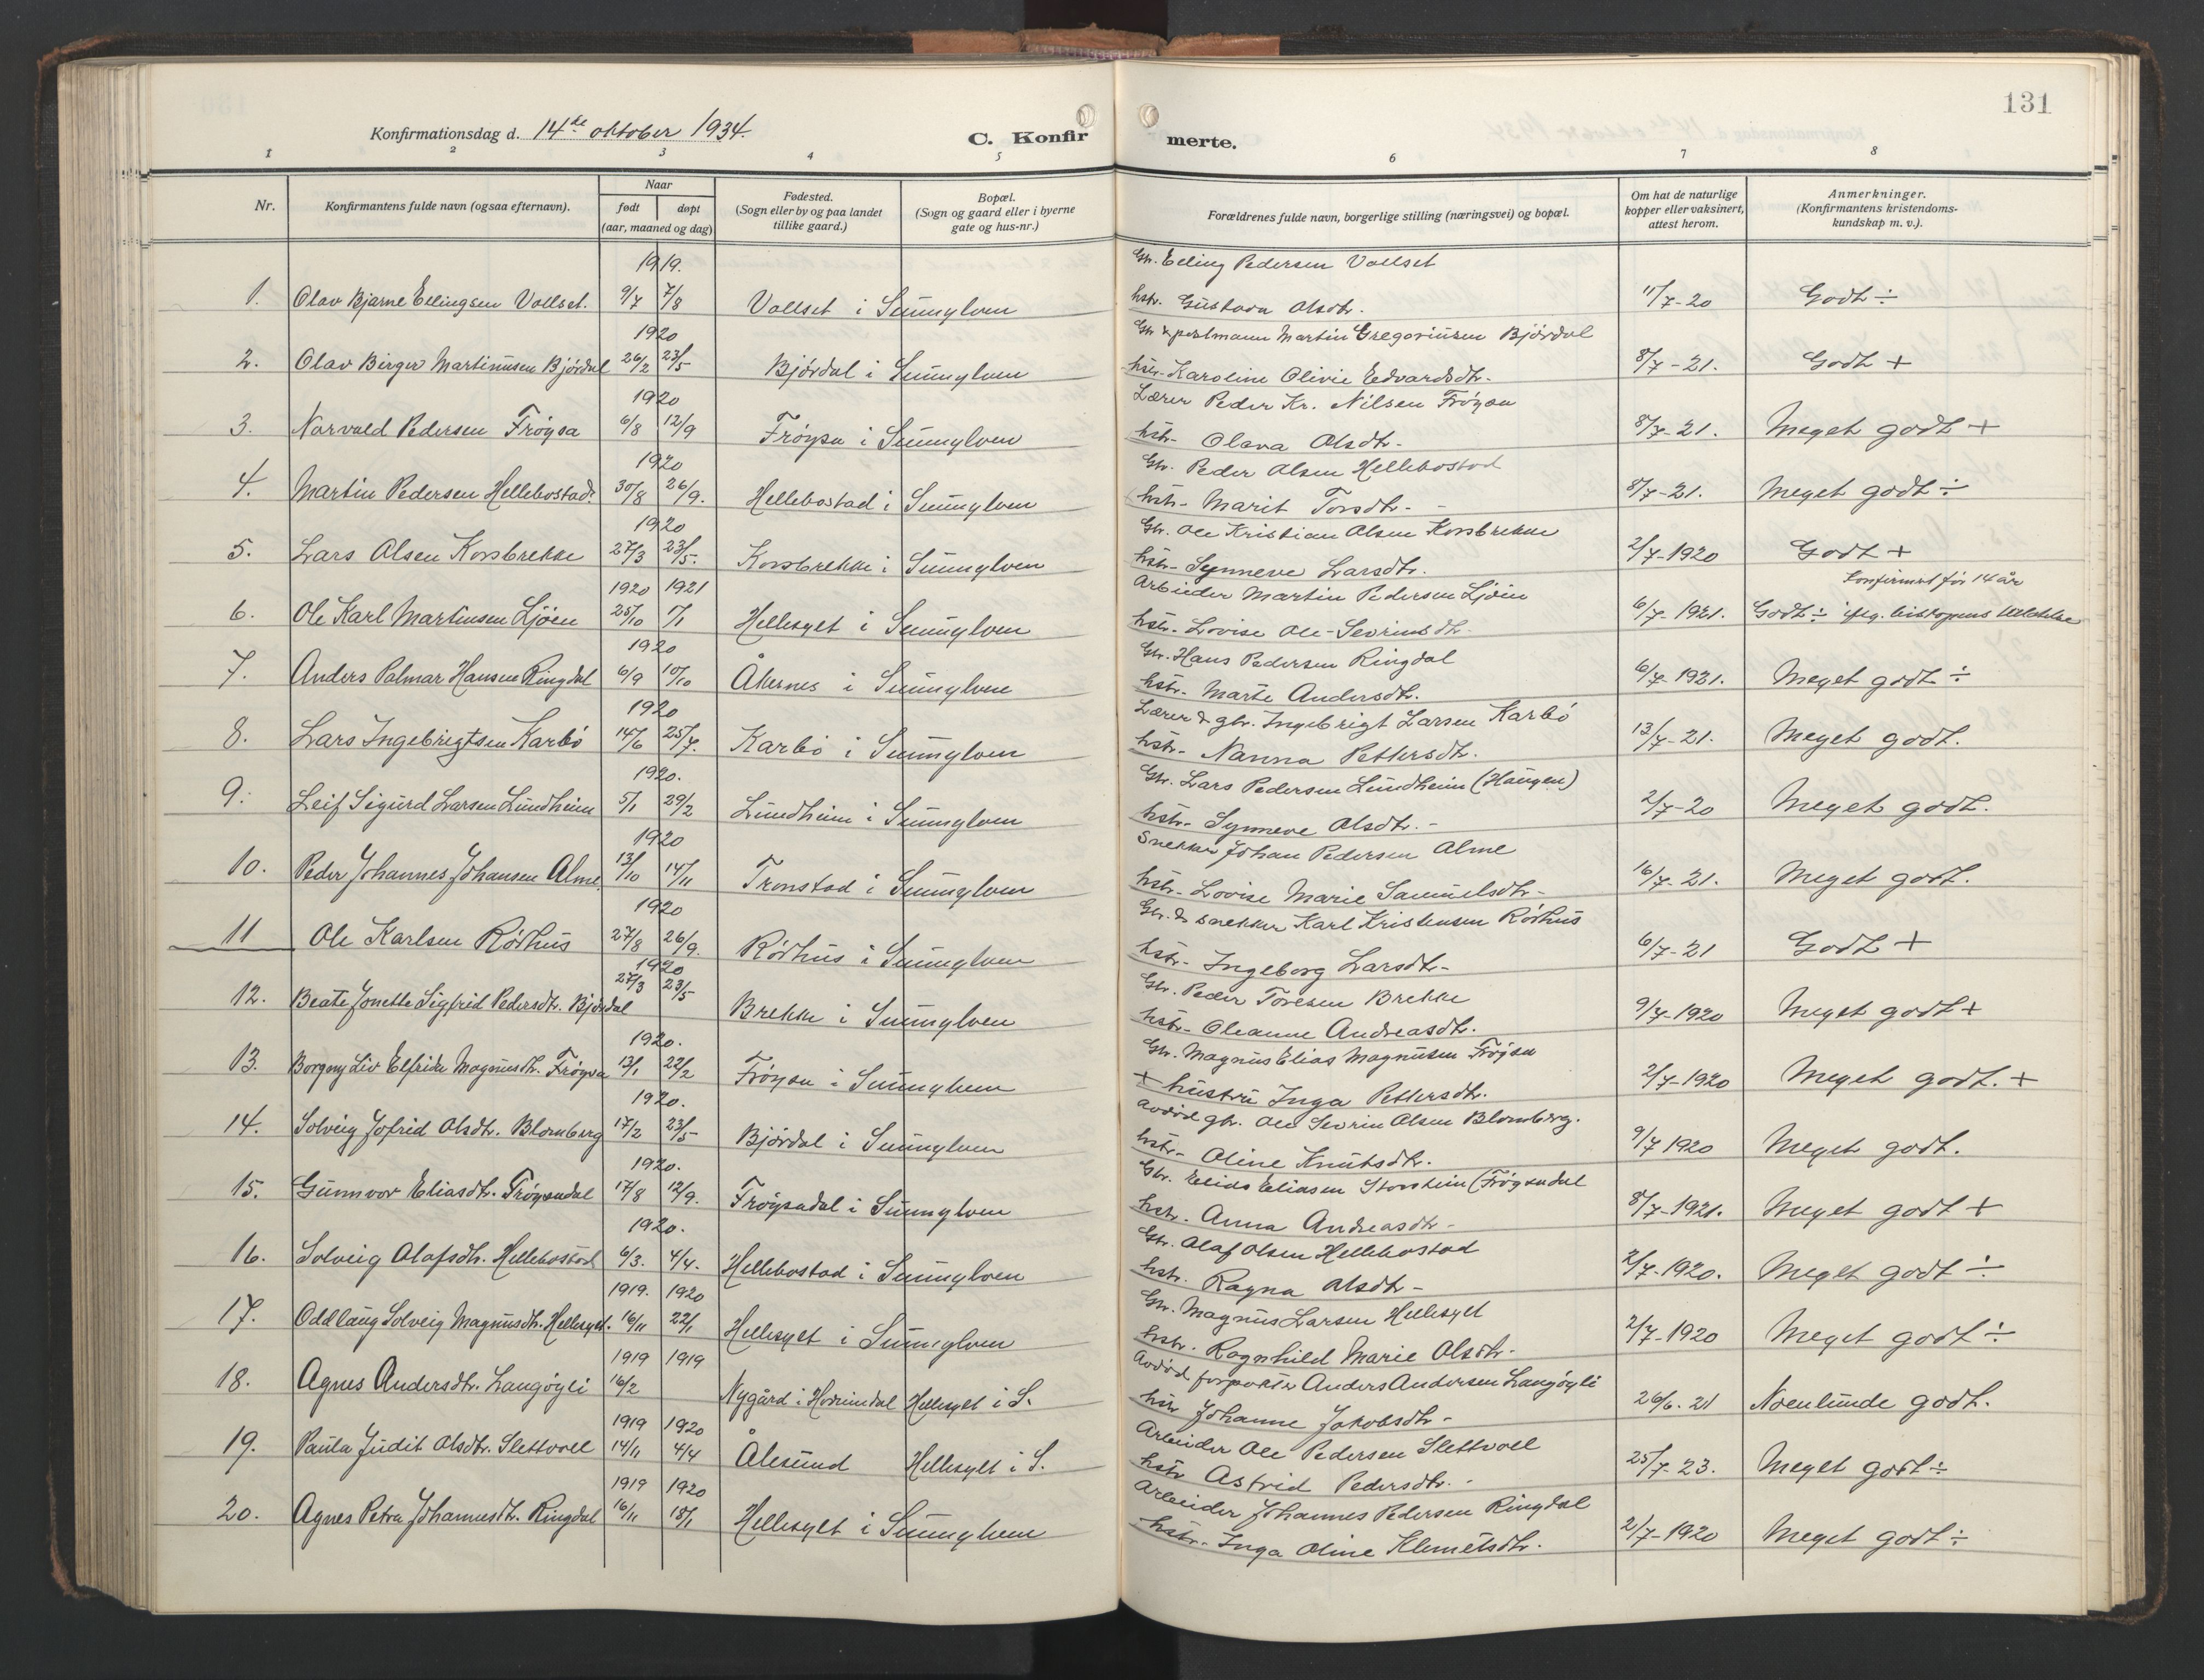 131
Konfirmationsdag d. 14de oktober 1934.
C. Konfirmerte.
1 2 3 4 5 6 7 8
Nr.
Konfirmantens fulde navn (ogsaa efternavn).
Naar
født døpt
(aar, maaned og dag)
Fødested.
(Sogn eller by og paa landet
tillike gaard.)
Bopæl.
(Sogn og gaard eller i byerne
gate og hus-nr.)
Forældrenes fulde navn, borgerlige stilling (næringsvei) og bopæl.
Om hat de naturlige
kopper eller vaksinert,
attest herom.
Anmerkninger.
(Konfirmantens kristendoms-
kundskap m. v.).
1919. Gbr. Elling Pedersen Vollset
1. Olav Bjarne Ellingsen Vollset. 9/7 7/8 Vollset i Sunnylven hstr. Gustava Olsdtr. 11/7-20 Godt ÷
1920 Gbr & postmann Martin Gregoriussen Bjørdal
2. Olav Birger Martinusen Bjørdal 26/2 23/5 Bjørdal i Sunnylven hstr. Karoline Olivie Edvardsdtr. 8/7-21. Godt +
1920 Lærer Peder Kr. Nilsen Frøysa
3. Norvald Pedersen Frøysa 6/8 12/9 Frøysa i Sunnylven hstr. Olava Olsdtr. 8/7-21. Meget godt +
1920 Gbr. Peder Olsen Hellebostad
4. Martin Pedersen Hellebostad. 30/8 26/9. Hellebostad i Sunnylven hstr. Marit Torsdtr. 8/7-21. Meget godt ÷
1920 Gbr. Ole Kristian Olsen Korsbrekke
5. Lars Olsen Korsbrekke 27/3 23/5. Korsbrekke i Sunnylven hstr. Synneve Larsdtr. 2/7-1920 Godt +
1920 1921 Arbeider Martin Pedersen Ljøen Konfirmert før 14 år
6. Ole Karl Martinsen Ljøen 25/10 1/1 Hellesylt i Sunnylven hstr. Lovise Ole-Sevrinsdtr. 6/7-1921. Godt ÷ iflg. biskopens tillatelse
1920 Gbr. Hans Pedersen Ringdal
7. Anders Palmar Hansen Ringdal 6/9 10/10 Åkernes i Sunnylven hstr. Marte Andersdtr. 6/7-1921. Meget godt ÷
1920 Lærer & gbr. Ingebrigt Larsen Karbø
8. Lars Ingebrigtsen Karbø 14/6 25/7. Karbø i Sunnylven hstr. Nanna Pettersdtr. 13/7-21. Meget godt.
1920. Gbr. Lars Pedersen Lundheim (Haugen)
9. Leif Sigurd Larsen Lundheim 5/1 29/2 Lundheim i Sunnylven hstr. Synneve Olsdtr. 2/7-20 Meget godt.
1920 Snekker Johan Pedersen Alme
10. Peder Johannes Johansen Alme 13/10 14/11 Tronstad i Sunnylven hstr. Lovise Marie Samuelsdtr. 16/7-21. Meget godt.
1920 Gbr. & snekker Karl Kristensen Rødhus
11 Ole Karlsen Rødhus 27/8 26/9. Rødhus i Sunnylven hstr. Ingeborg Larsdtr. 6/7-21 Godt +
1920 Gbr. Peder Toresen Brekke
12. Beate Jonette Sigfrid Pedersdtr. Bjørdal 27/3 23/5 Brekke i Sunnylven hstr. Oleanne Andreasdtr. 9/7-1920 Meget godt +
1920. Gbr. Magnus Elias Magnusen Frøysa
13. Borgny Liv Elfride Magnusdtr. Frøysa 13/1 22/2 Frøysa i Sunnylven + hustru Inga Pettersdtr. 2/7-1920 Meget godt. +
1920. Avdød gbr. Ole Sevrin Olsen Blomberg.
14. Solveig Jofrid Olsdtr. Blomberg 17/2 23/5 Bjørdal i Sunnylven hstr. Oline Knutsdtr. 9/7 1920 Meget godt.
1920. Gbr. Elias Eliasen Storsheim (Frøysadal
15. Gunnvor Eliasdtr. Frøysadal 17/8 12/9. Frøysadal i Sunnylven hstr. Anna Andreasdtr. 8/7-1921. Meget godt +
1920. Gbr. Olaf Olsen Hellebostad
16. Solveig Olafsdtr. Hellebostad 6/3. 4/4. Hellebostad i Sunnylven hstr. Ragna Olsdtr. 2/7-1920. Meget godt ÷
1919. 1920 Gbr. Magnus Larsen Hellesylt
17. Oddlaug Solveig Magnusdtr. Hellesylt. 16/11 22/1 Hellesylt i Sunnylven hstr. Ragnhild Marie Olsdtr. 2/7-1920 Meget godt ÷
1919 1919 Avdød forpakter Anders Andersen Langøyli
18. Agnes Andersdtr. Langøyli 16/2 Nygård i Hornindal Hellesylt i S. hstr Johanne Jakobsdtr. 26/6.21 Noenlunde godt.
1919 1920 Arbeider Ole Pedersen Slettvoll
19. Paula Judit Olsdtr. Slettvoll 14/11 4/4 Ålesund Hellesylt i S. hstr Astrid Pedersdtr. 25/7-23. Meget godt ÷
1919 1920 Arbeider Johannes Pedersen Ringdal
20. Agnes Petra Johannesdtr. Ringdal 16/11 18/1 Hellesylt i Sunnylven hstr. Inga Oline Klemetsdtr. 2/7-1920 Meget godt ÷